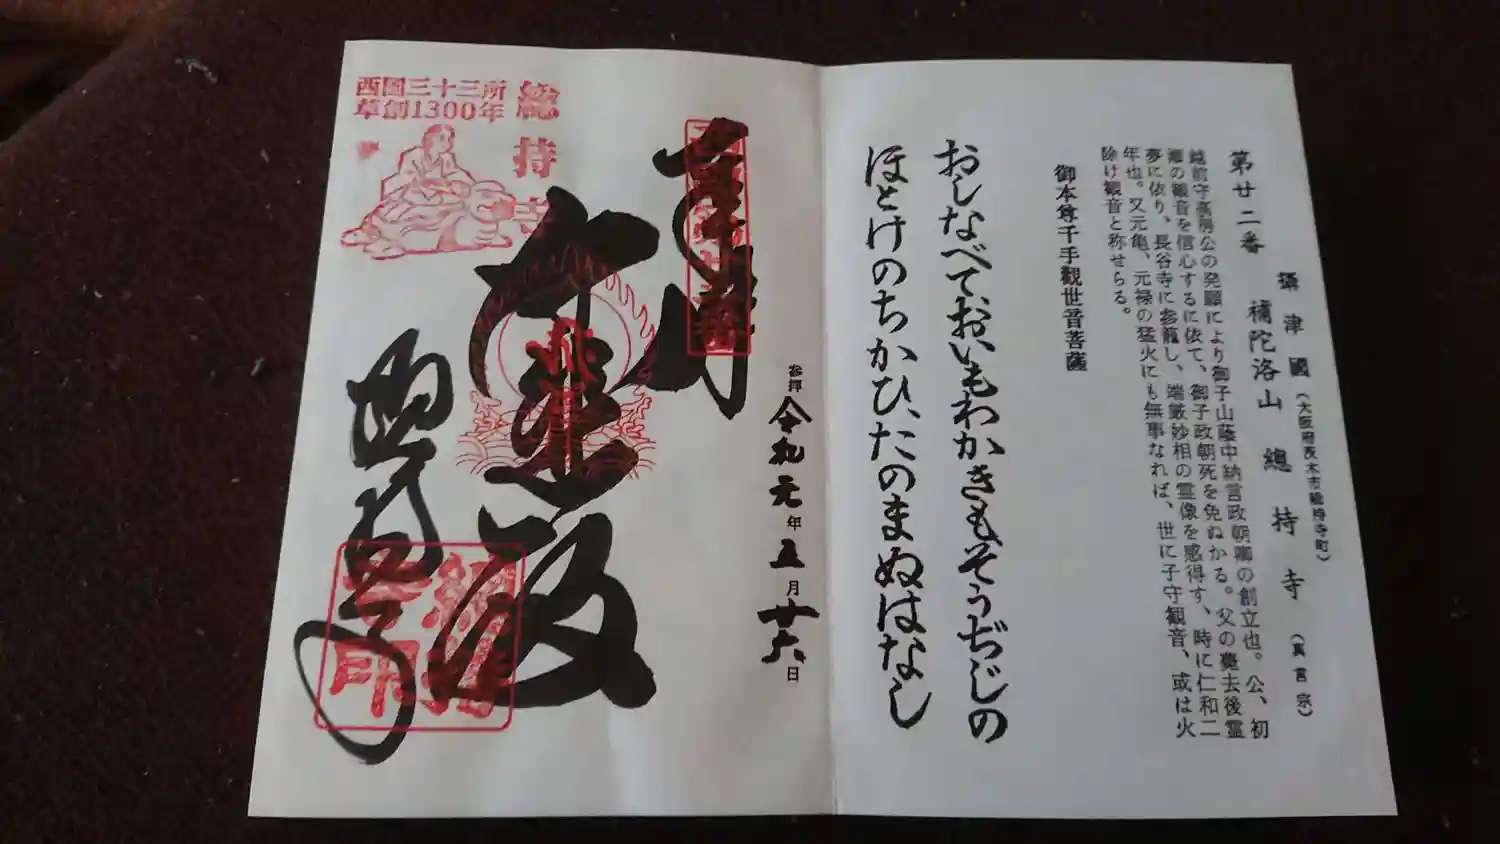 第廿二番
攝津國(大阪府茨木市総持寺町)
補陀洛山 總持寺(真言宗)
越前守高房公の発願により御子山蔭中納言政朝卿の創立也。公、初
瀬の観音を信心するに依て、御子政朝死を免ぬかる。父の薨去後霊
夢に依り、長谷寺に参籠し、端厳妙相の霊像を感得す、時に仁和二
年也。又元亀、元禄の猛火にも無事なれば、世に子守観音、或は火
除け観音と称せらる。
御本尊千手觀世音菩薩
おしなべておいもわかきもそうぢじの
ほとけのちかひ、たのまぬはなし
奉拝
参拝 令和元年五月廿六日
大悲殿
総持寺
西国三十三所
草創1300年
總持寺